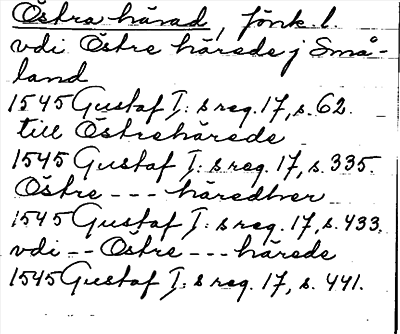 Östra härad, Jönk. l.
vdi Östre härede j Små-
land
1545 Gustaf I: s reg. 17, s. 62.
till Östrehärede
1545 Gustaf I: s reg. 17, s. 335.
Östre - - - häredher
1545 Gustaf I: s reg. 17, s. 433.
vdi - - Östre - - - härede
1545 Gustaf I: s reg. 17, s. 441.